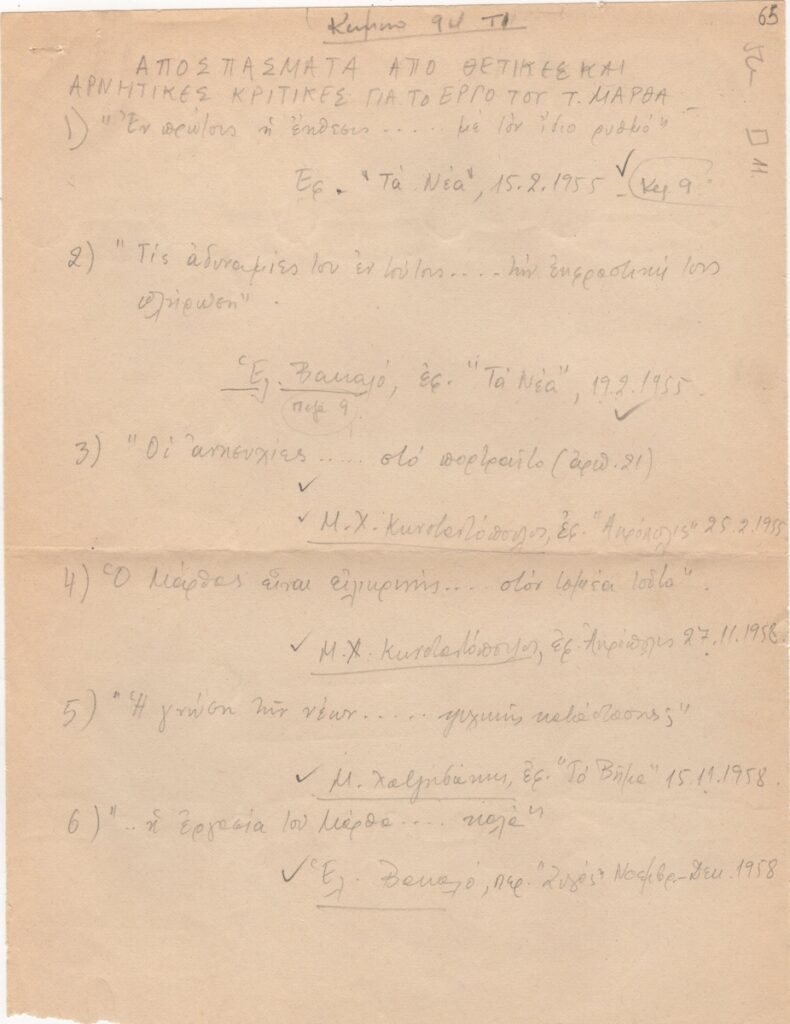 65
Κειμενο 9
ΑΠΟΣΠΑΣΜΑΤΑ ΑΠΟ ΘΕΤΙΚΕΣ ΚΑΙ
ΑΡΝΗΤΙΚΕΣ ΚΡΙΤΙΚΕΣ ΓΙΑ ΤΟ ΕΡΓΟ ΤΟΥ Τ. ΜΑΡΘΑ
1) "Ἐν πρώτοις ἡ ἔκθεσις ..... μέ τόν ἴδιο ρυθμό"
Εφ. "Τά Νέα", 15.2.1955 Κειμ. 9
2) "Τίς ἀδυναμίες του ἐν τούτοις ..... τήν ἐκφραστική τους
πλήρωση".
Ἑλ. Βακαλό, ἐφ. "Τά Νέα", 19.2.1955.
9
3) "Οἱ ἀνησυχίες ..... στό πορτραῖτο (ἀριθ. 21)
Μ.Χ. Κωνσταντόπουλος, ἐφ. "Ἀκρόπολις" 25.2.1955
4) Ὁ Μάρθας εἶναι εἰλικρινής .... στόν τομέα τοῦτο".
Μ.Χ. Κωνσταντόπουλος, ἐφ. Ἀκρόπολις 27.11.1958.
5) "Ἡ γνώση τῶν νέων ..... ψυχικῆς κατάστασης"
Μ. Χατζηδάκης, ἐφ. "Τό Βῆμα" 15.11.1958.
6) ".. ἡ ἐργασία τοῦ Μάρθα ..... καλά"
Ἑλ. Βακαλό, περ. "Ζυγός" Νοεμβρ.-Δεκ. 1958